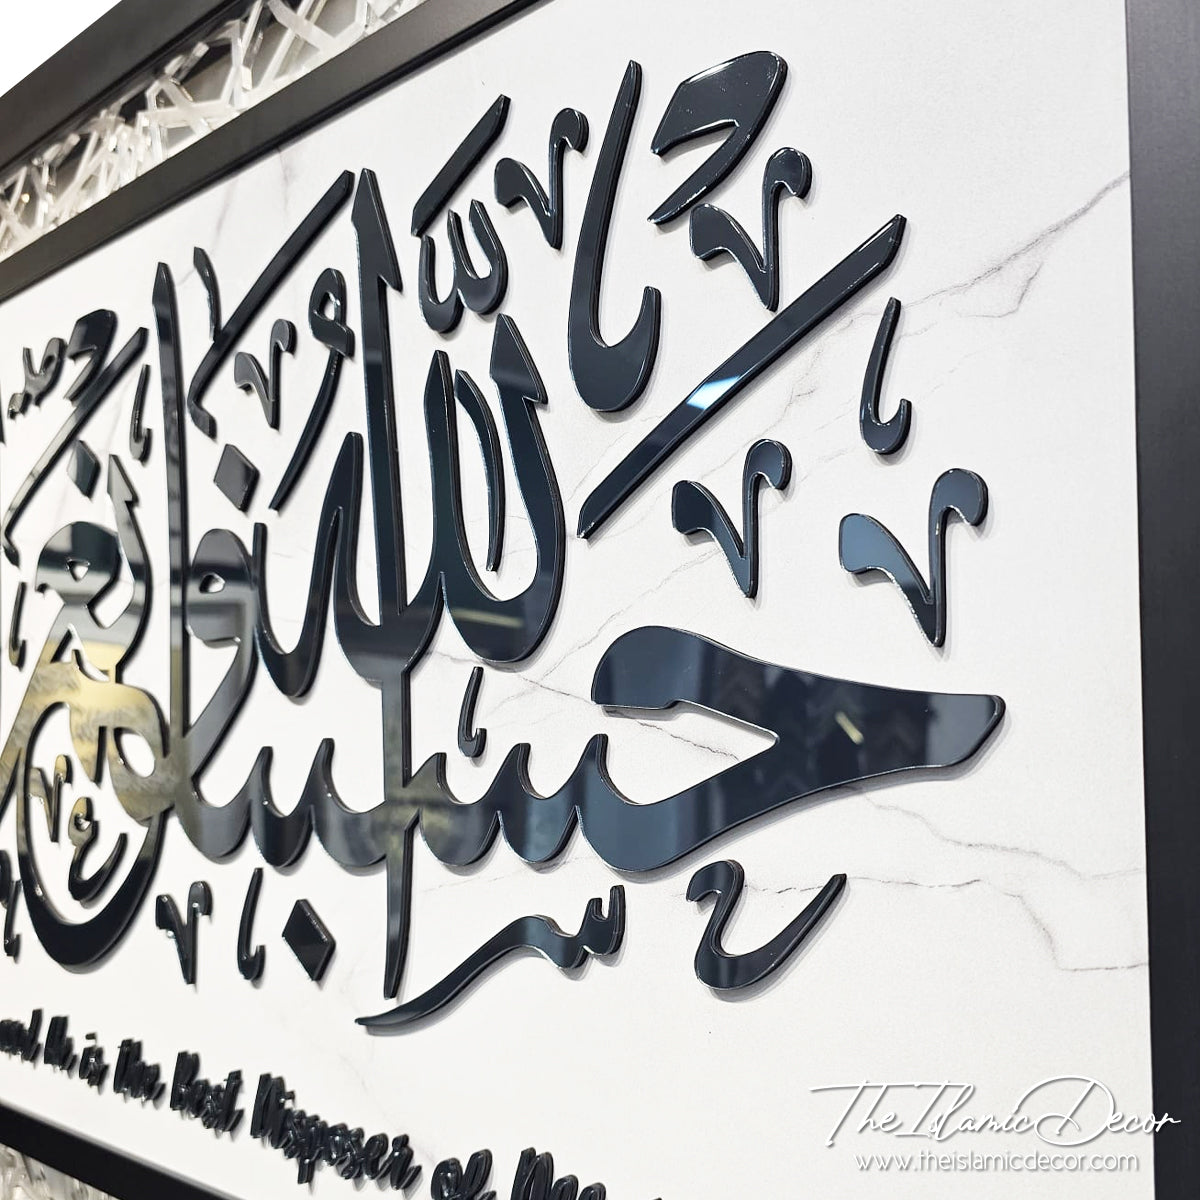 حسبنا الله و نعم
and He is the Best Disposer of
TheIslamicDecor
www.theislamicdecor.com